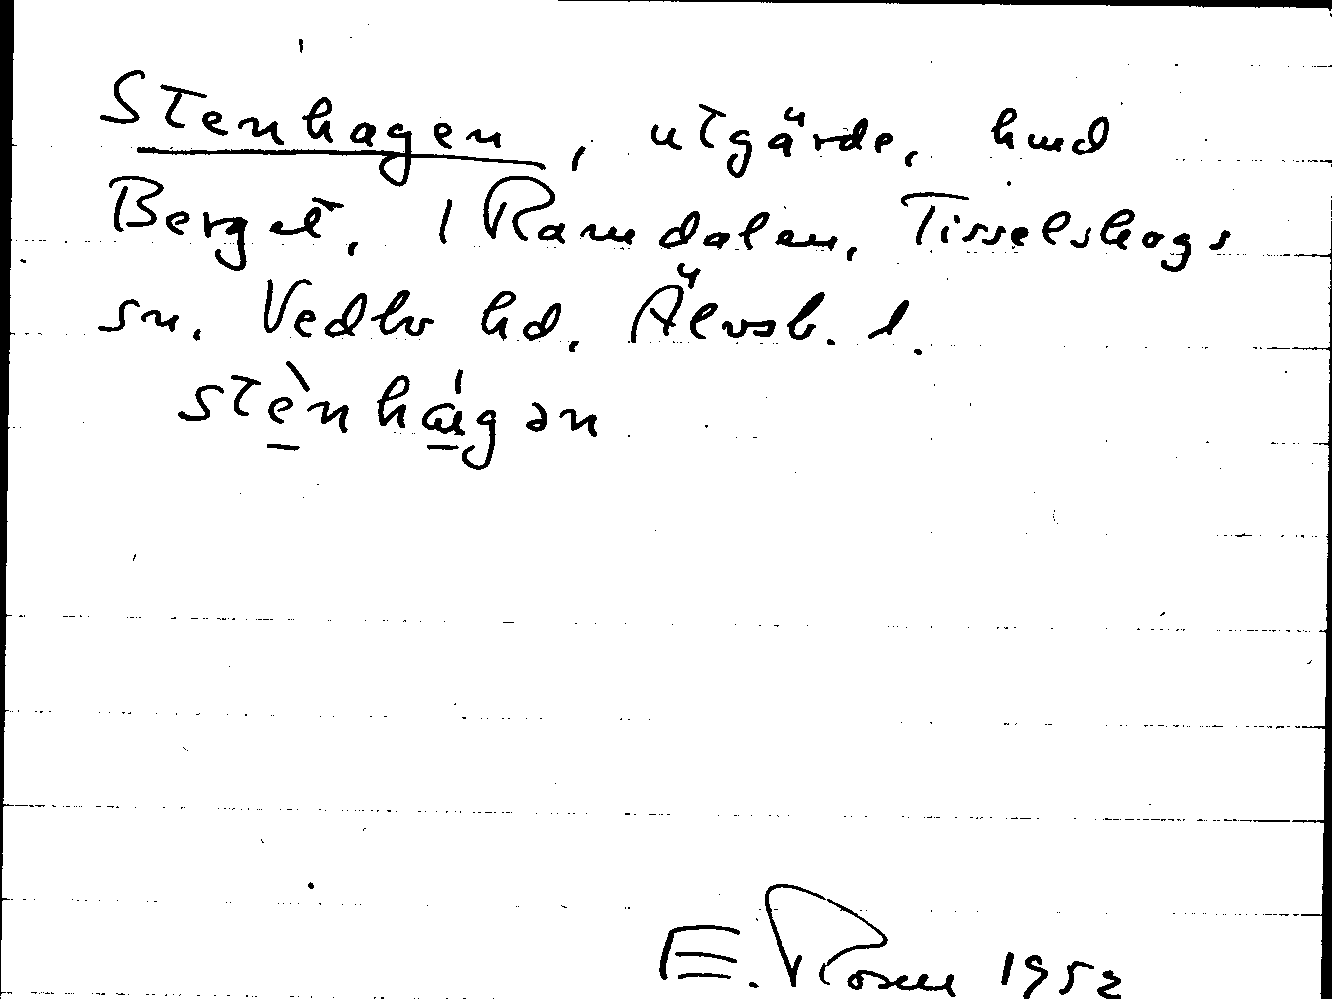 Stenhagen, utgärde, hmd
Berget, 1 Ramdalen, Tisselskogs
sn. Vedbo hd. Älvsb. l.
stènháigən
E. Rosen 1952